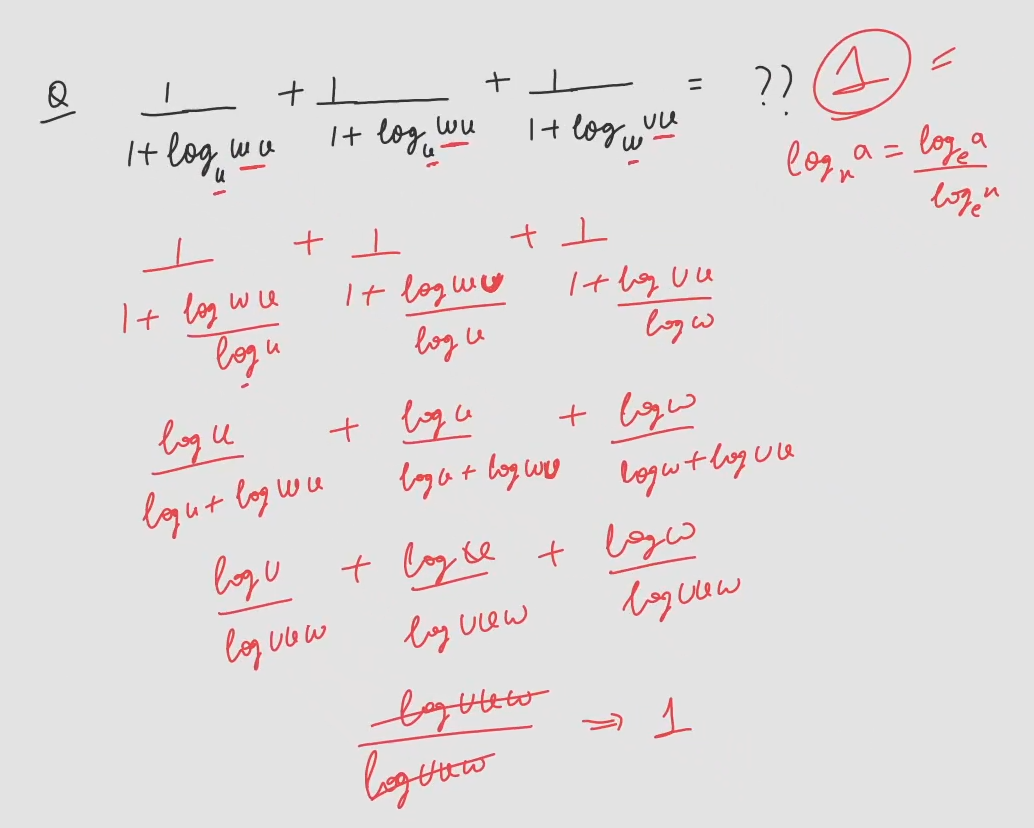 Q 1/(1 + log_u wu) + 1/(1 + log_u wu) + 1/(1 + log_w vu) = ?? 1 =
log_x a = log_e a / log_e x
1/(1 + log wu / log u) + 1/(1 + log wv / log u) + 1/(1 + log vu / log w)
log u / (log u + log wu) + log u / (log u + log wv) + log w / (log w + log vu)
log v / log vuw + log u / log vuw + log w / log vuw
log vuw / log vuw ⇒ 1